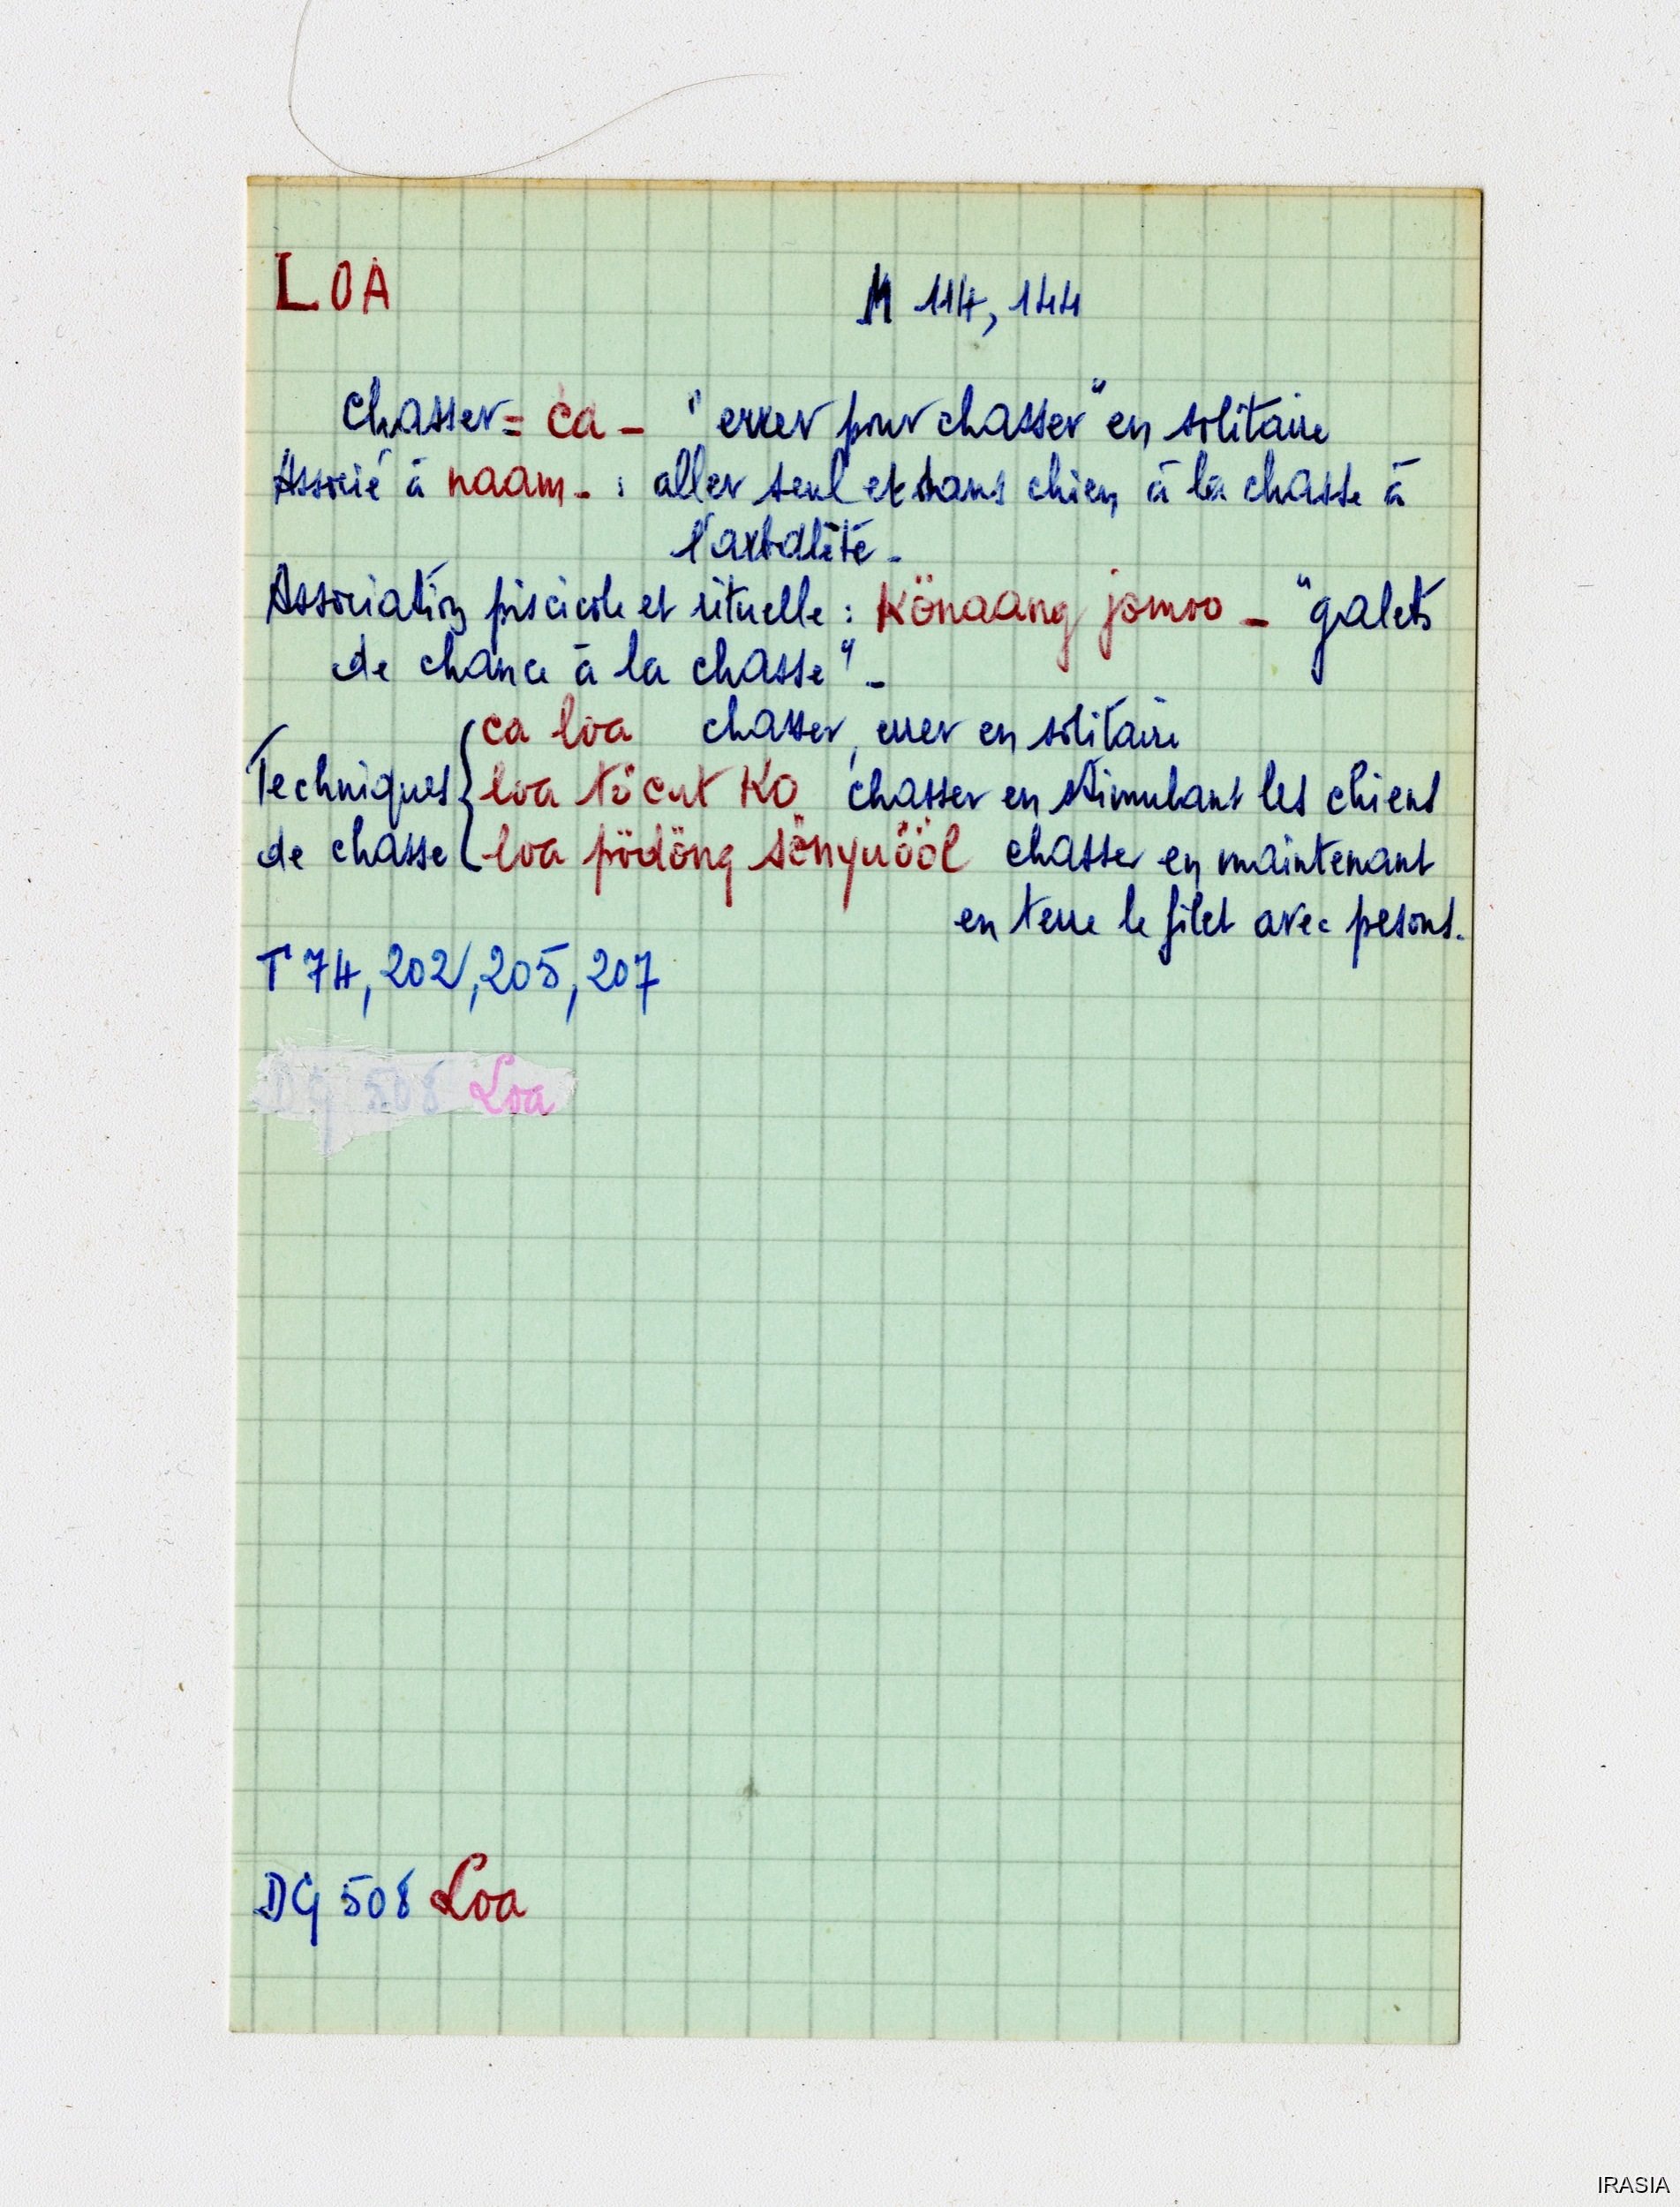 LOA M 114, 144
chasser = ca - "errer pour chasser" en solitaire
Associé à naam - : aller seul et sans chien à la chasse à
l'arbalète -
Association piscicole et rituelle : Könaang jömoo - "galets
de chance à la chasse" -
ca loa chasser, errer en solitaire
Techniques { loa töcut Ko chasser en stimulant les chiens
de chasse loa pödöng sönyuööl chasser en maintenant
en terre le filet avec pesons.
T 74, 202, 205, 207
DG 508 Loa
DG 508 Loa
IRASIA